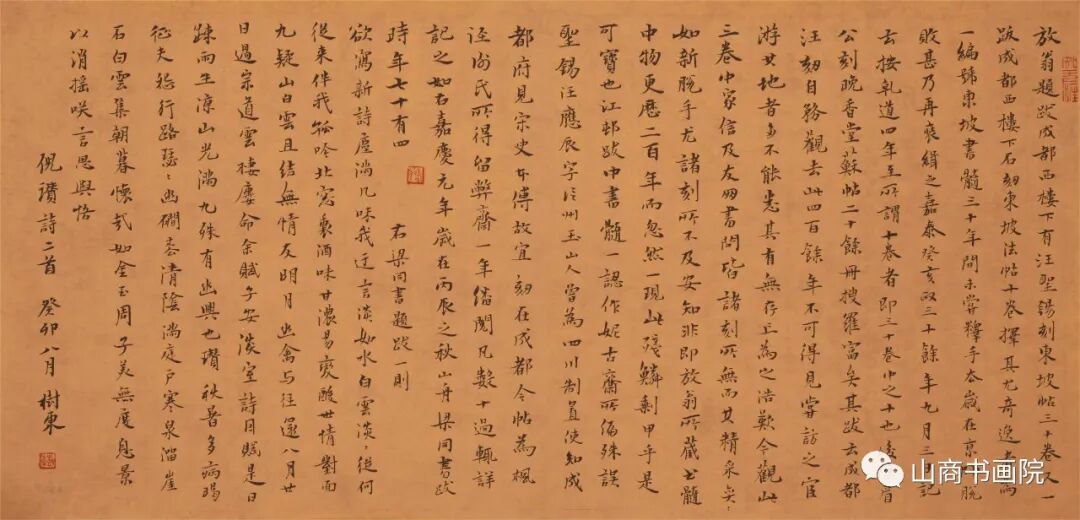 放翁題跋成都西樓下有汪聖錫刻東坡帖三十卷又一
跋成都西樓下石刻東坡法帖十卷擇其尤奇逸者為
一編號東坡書髓三十年間未嘗釋手去歲在京 脫
敗甚乃再裝緝之嘉泰癸亥 三十餘年九月三日記
去按乾道四年至所謂十卷者即三十卷中之十也 眉
公刻晚香堂蘇帖二十餘冊搜羅富矣其跋云成都
汪刻自務觀去此四百餘年不可得見嘗訪之宦
游其地者多不能悉其有無存亡為之浩歎今觀此
三卷中家信及友朋書問皆諸刻所無而其精采奕〻
如新脫手尤諸刻所不及安知非即放翁所藏書髓
中物更歷二百年而忽然一現此殘鱗剩甲乎是
可寶也江邨跋中書髓一認作妮古齋所偏殊誤
聖錫汪應辰字 州玉山人嘗為四川制置使知成
都府見宋史本傳故宜刻在成都今帖為楓
涇謝氏所得留弊齋一年繙閱凡數十過輒詳
記之如右嘉慶元年歲在丙辰之秋山舟梁同書跋
時年七十有四
右梁同書題跋一則
欲寫新詩塵滿几味我迂言淡如水白雲淡〻從何
從來伴我孤吟北窓裏酒味甘濃易變酸世情對面
九疑山白雲且結無情友明月幽禽與往還八月廿
日過宗道雲棲廬命余賦子安淡室詩同賦是日
踈雨生涼山光滿九殊有幽興也瓚秋暑多病暍
征夫怨行路瑟〻幽磵松清陰滿庭戶寒泉溜崖
石白雲集朝暮懷哉如金玉周子美無度息景
以消搖咲言思與悟
倪瓚詩二首 癸卯八月 樹東
山商书画院